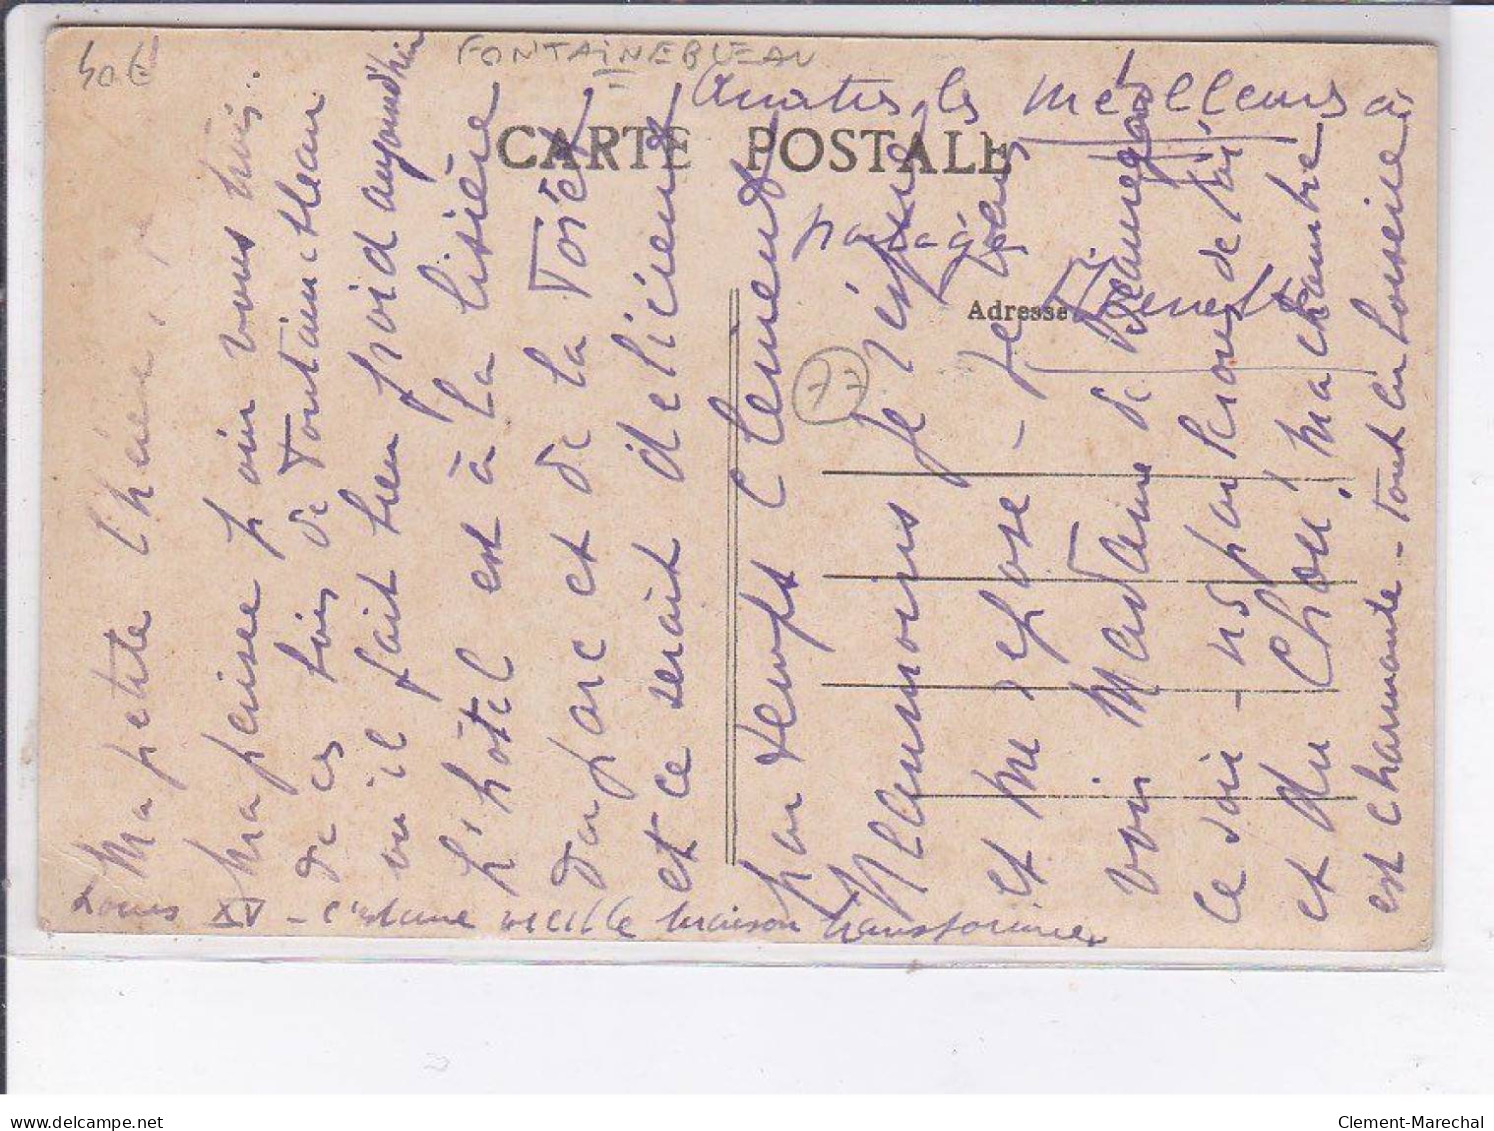 40€
FONTAINEBLEAU
CARTE POSTALE
Adresse
77
Ma petite chérie,
Ma pensée pour vous trois.
de ces bois de Fontainebleau
où il fait bien froid aujourd'hui
L'hôtel est à la lisière
du parc et de la Forêt
et ce serait délicieux
par temps clément
Néanmoins je résiste
et me repose - je
voir Madame de
ce soir
et du Chou! Ma chambre
est charmante - tout en boiserie
Louis XV - c'est une vieille maison transformée
les meilleurs à
partager
Ernest
delcampe.net
Clement-Marechal